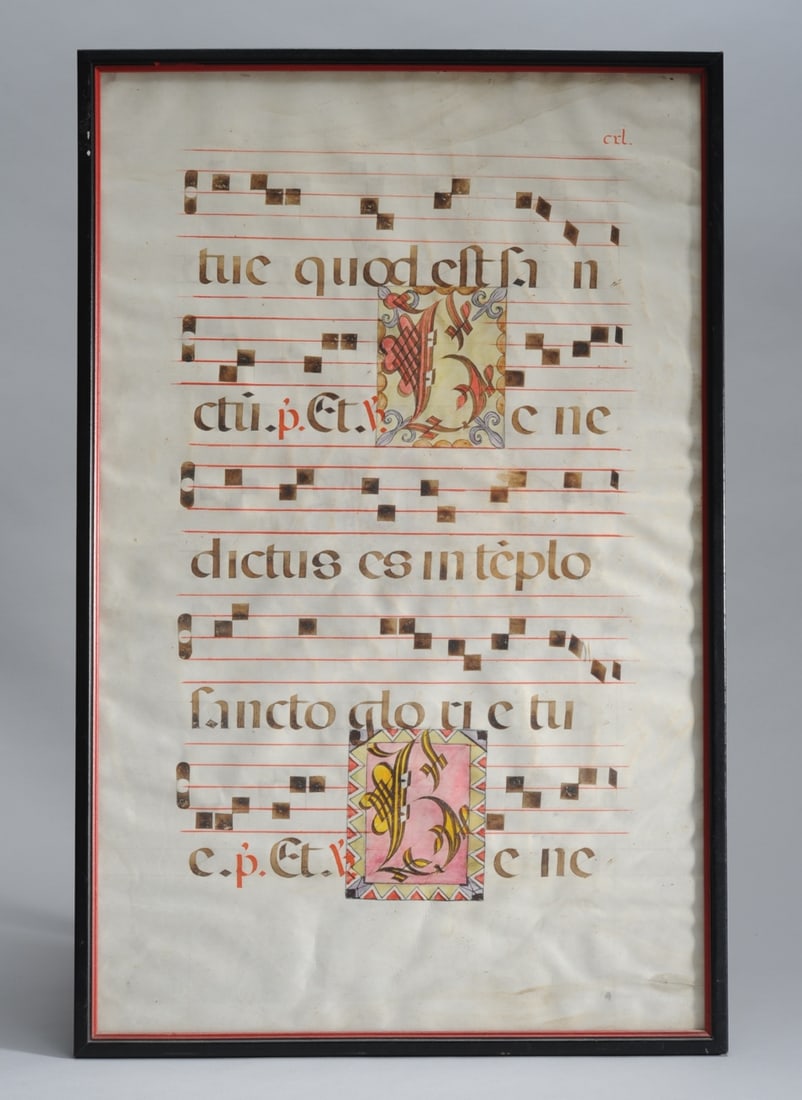 crl.
tue quod est san
ctũ. p. Et. V. Bene
dictus es in tẽplo
sancto glorie tu
e. p. Et. V. Bene